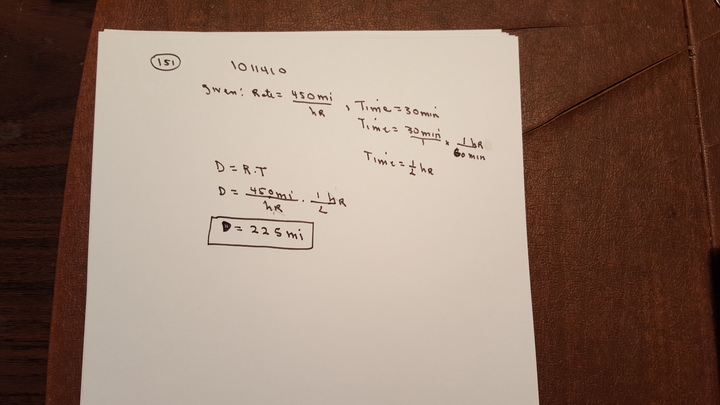 151
1011410
given: Rate = 450mi/hR, Time = 30min
Time = 30min/1 * 1hR/60min
Time = 1/2 hR
D = R.T
D = 450mi/hR . 1/2 hR
D = 225 mi